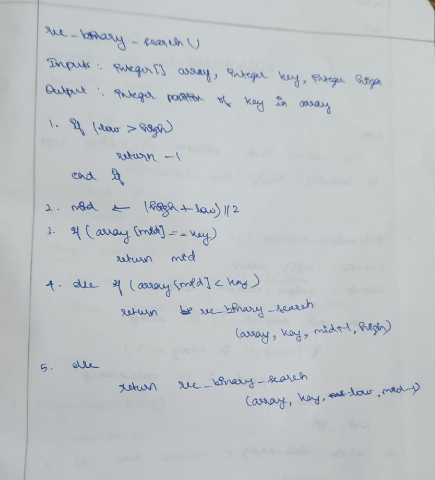 rec_binary_search()
Inputs: Integer[] array, Integer key, Integer high
Output: Integer position of key in array
1. If (low > high)
return -1
end if
2. mid ← (high + low)//2
3. if (array[mid] == key)
return mid
4. else if (array[mid] < key)
return rec_binary_search
(array, key, mid+1, high)
5. else
return rec_binary_search
(array, key, low, mid-1)